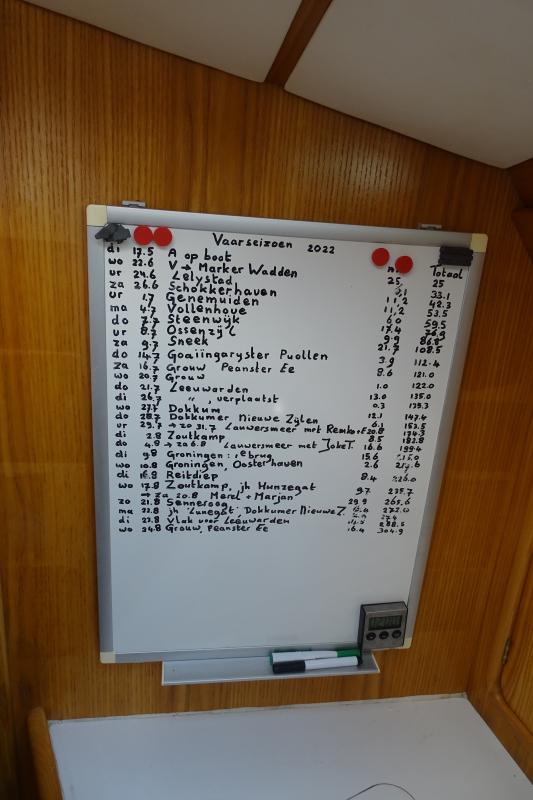 Vaarseizoen 2022
Totaal
di 17.5 A op boot
wo 22.6 V → Marker Wadden 25, 25
vr 24.6 Lelystad 8,1 33.1
za 26.6 Schokkerhaven 42.3
vr 1.7 Genemuiden 11,2 53.5
ma 4.7 Vollenhove 6.0 59.5
do 7.7 Steenwijk 17.4
vr 8.7 Ossenzijl 9.9 86.8
za 9.7 Sneek 21.7 108.5
do 14.7 Goaiïngaryster Puollen 3.9 112.4
za 16.7 Grouw Peanster Ee 8.6 121.0
wo 20.7 Grouw 1.0 122.0
do 21.7 Leeuwarden 13.0 135.0
di 26.7 " , verplaatst 0.3 135.3
wo 27.7 Dokkum 12.1 147.4
do 28.7 Dokkumer Nieuwe Zijlen 6.1 153.5
vr 29.7 → zo 31.7 Lauwersmeer met Remko+E 20.8 174.3
di 2.8 Zoutkamp 8.5 182.8
do 4.8 → za 6.8 Lauwersmeer met JokeT. 16.6 199.4
di 9.8 Groningen: brug 15.6
wo 10.8 Groningen, Oosterhaven 2.6
di 16.8 Reitdiep 8.4 226.0
wo 17.8 Zoutkamp, jh Hunzegat 9.7 235.7
→ za 20.8 Merel + Marjan 29.9 265.6
zo 21.8 Senneroog
ma 22.8 jh 'Lunegat' Dokkumer Nieuwe Z.
di 23.8 Vlak voor Leeuwarden 288.5
wo 24.8 Grouw, Peanster Ee 16.4 304.9